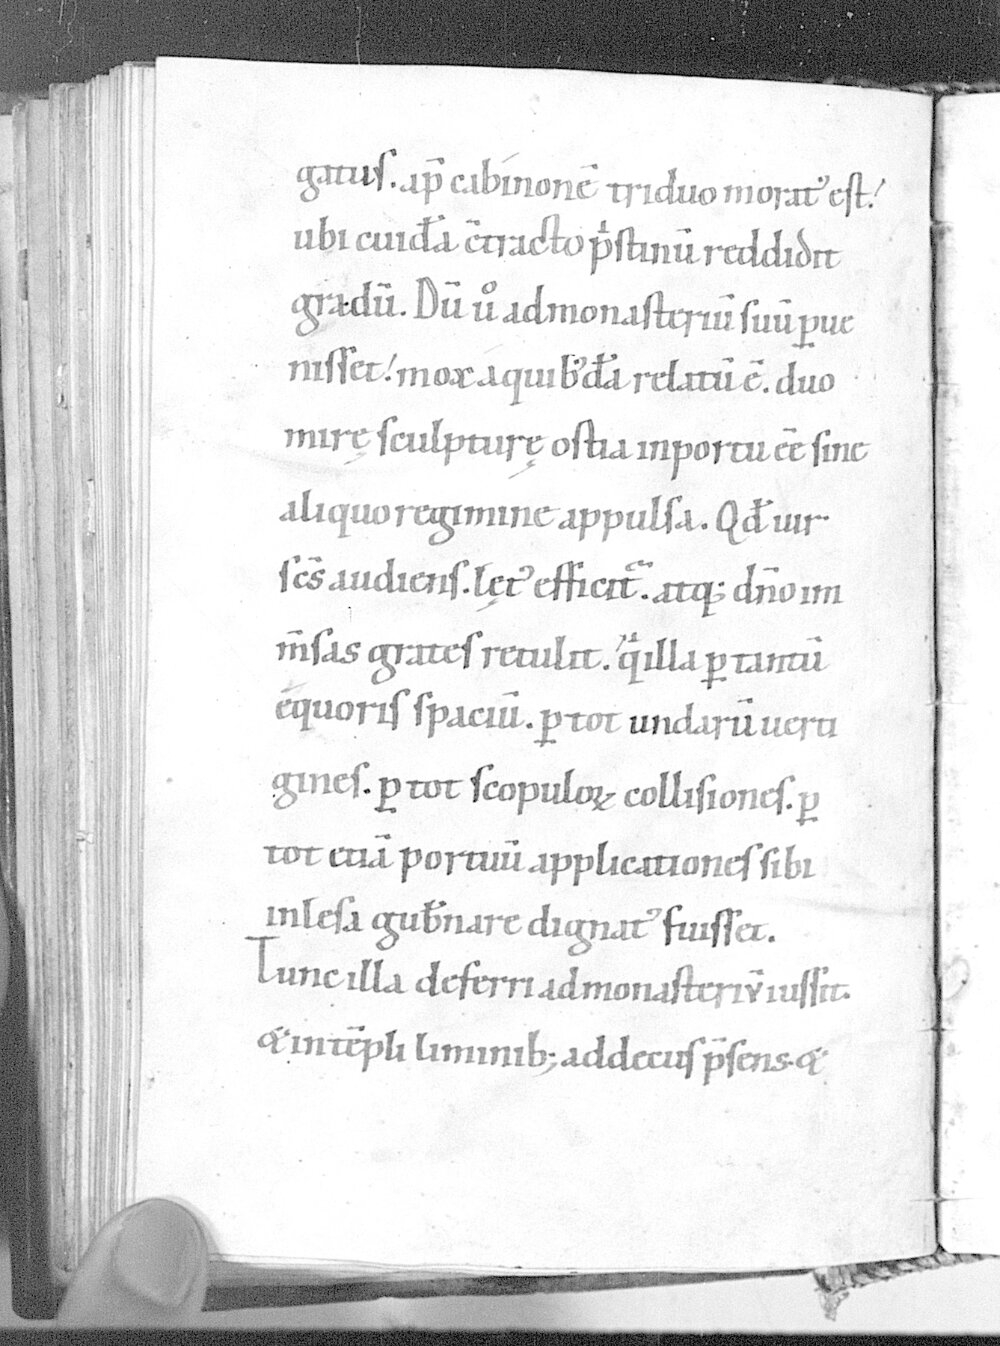 gatus. ap̄ cabinonē triduo morat᾽ est.
ubi cuidā c̄tracto p̍stinū reddidit
gradū. Dū u̾ ad monasteriū suū ꝑue
nisset! mox a quib᾽dā relatū ē. duo
mirę sculpturę ostia in portu ēe sine
aliquo regimine appulsa. Qđ uir
sc̄s audiens. lęt᾽ efficit᾽. atq; dn̄o im
m̄sas grates retulit. q̍ illa ꝑ tantū
equoris spaciū. ꝑ tot undarū uerti
gines. ꝑ tot scopuloꝝ collisiones. ꝑ
tot etiā portuū applicationes sibi
inlesa gub̄nare dignat᾽ fuisset.
Tunc illa deferri ad monasteriū iussit.
& in tēpli liminib; ad decus p̄sens &